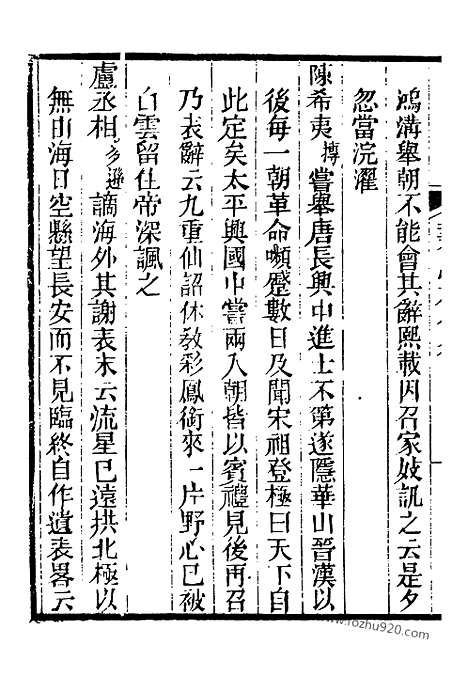 鴻溝舉朝不能會其辭熙載因召家妓訊之云是夕
忽當浣濯
陳希夷摶嘗舉唐長興中進士不第遂隱華山晉漢以
後每一朝革命嚬蹙數日及聞宋祖登極曰天下自
此定矣太平興國中嘗兩入朝皆以賓禮見後再召
乃表辭云九重仙詔休教彩鳳銜來一片野心已被
白雲留住帝深諷之
盧丞相多遜謫海外其謝表末云流星已遠拱北極以
無由海日空懸望長安而不見臨終自作遺表畧云
www.rozhu920.com